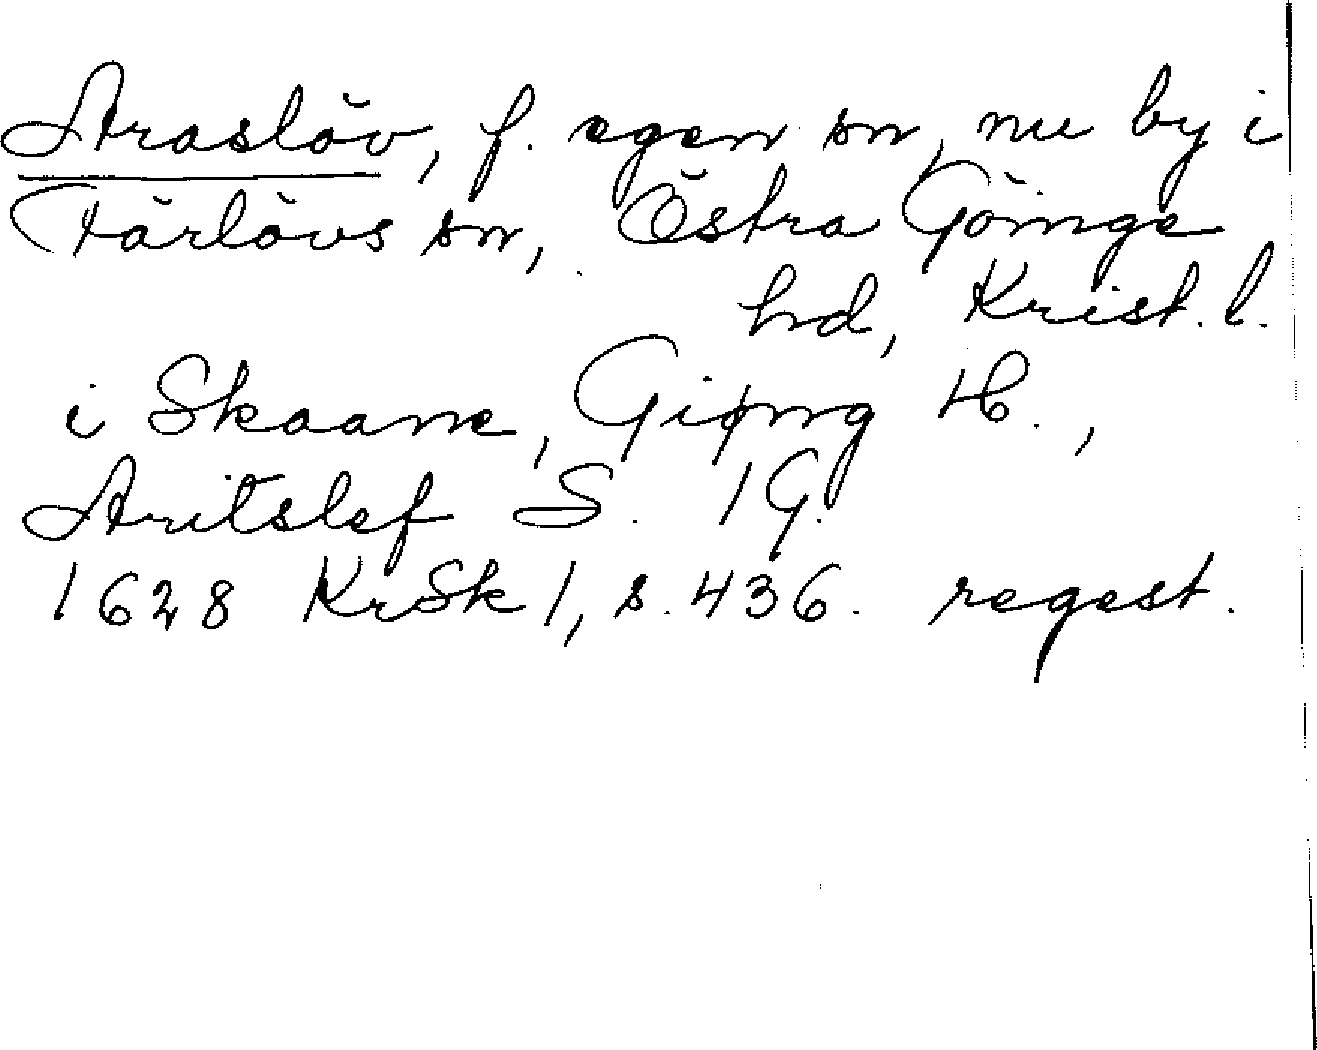 Araslöv, f. egen sn, nu by i
Färlövs sn, Östra Göinge
hd, Krist. l.
i Skaane, Giøng H.,
Aritslef S. 1 G.
1628 KrSk 1, s. 436. regest.